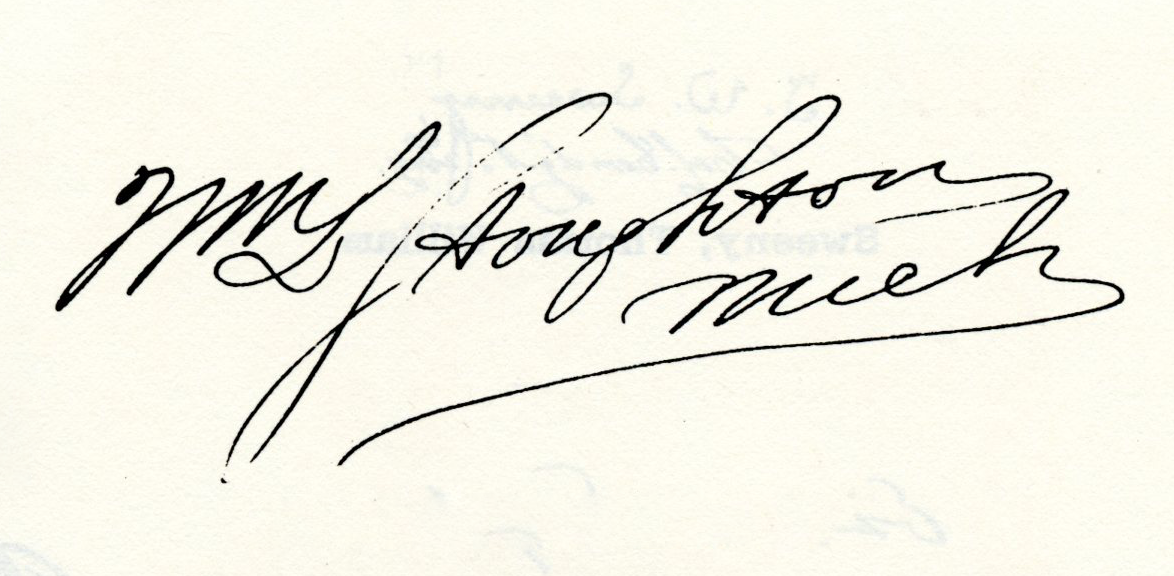 Wm L Stoughton
Mich